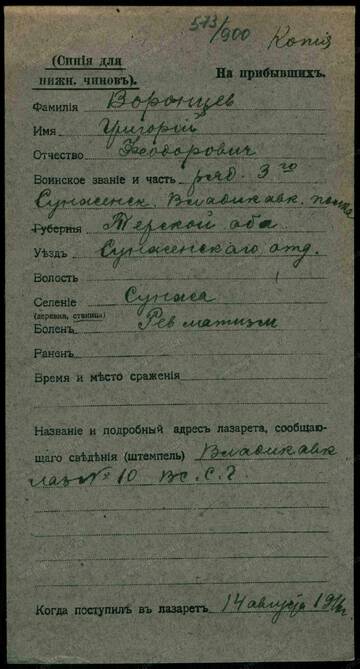 573/900 Копія
(Синія для
нижн. чиновъ).
На прибывшихъ.
Фамилія Воронцев
Имя Григорой
Отчество Ѳеодорович
Воинское званіе и часть ряд. 3го
Сунженск. Владикавк. полка
Губернія Терской обл
Уѣздъ Сунженскаго отд.
Волость
Селеніе Сунжа
(деревня, станица)
Боленъ Ревматизм
Раненъ
Время и мѣсто сраженія
Названіе и подробный адресъ лазарета, сообщаю-
щаго свѣдѣнія (штемпель) Владикавк
лаз № 10 В.С.Г.
Когда поступилъ въ лазаретъ 14 августа